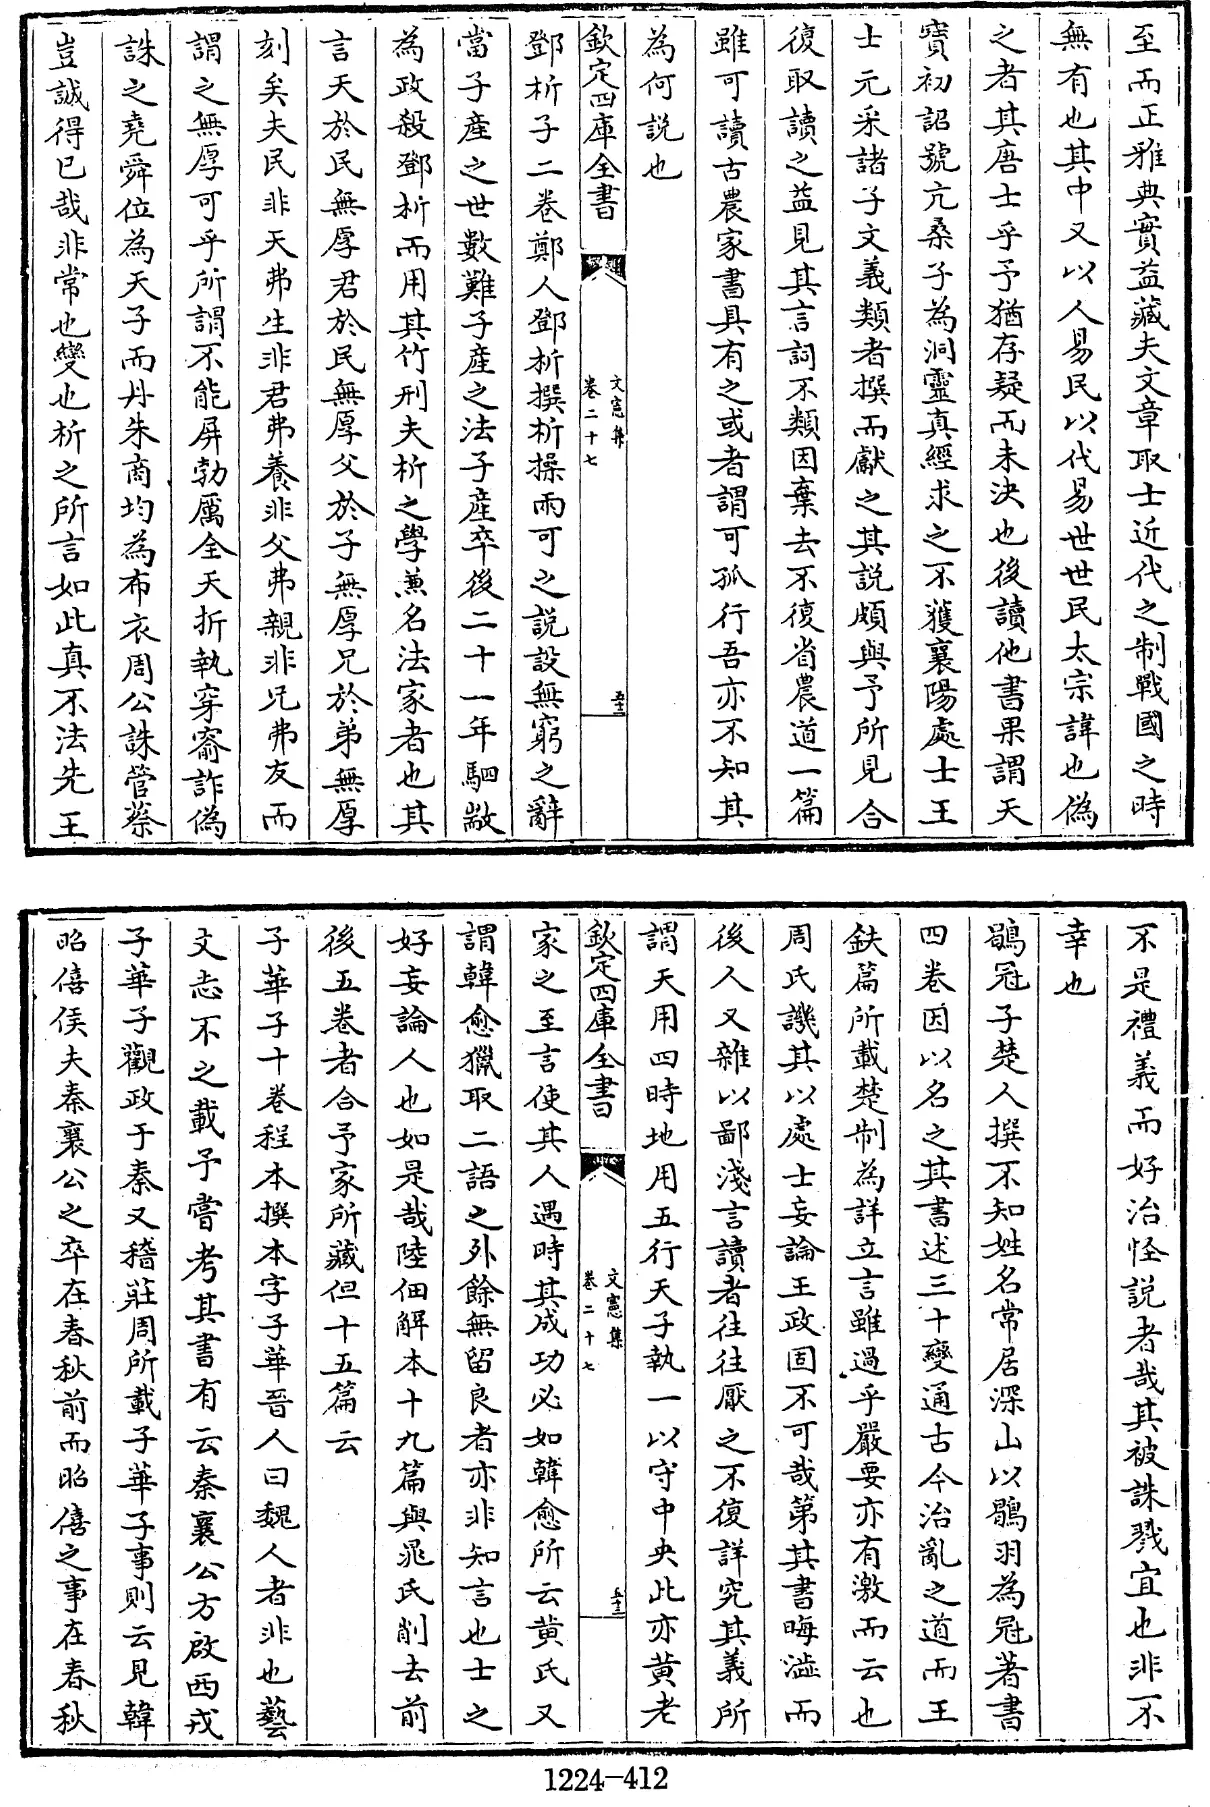 至而正雅典實益藏夫文章取士近代之制戰國之時
無有也其中又以人易民以代易世世民太宗諱也偽
之者其唐士乎予猶存疑而未決也後讀他書果謂天
寶初詔號亢桑子為洞靈真經求之不獲襄陽處士王
士元采諸子文義類者撰而獻之其說頗與予所見合
復取讀之益見其言詞不類因棄去不復省農道一篇
雖可讀古農家書具有之或者謂可孤行吾亦不知其
為何說也
欽定四庫全書
文憲集
卷二十七
五十三
鄧析子二卷鄭人鄧析撰析操兩可之說設無窮之辭
當子產之世數難子產之法子產卒後二十一年駟歂
為政殺鄧析而用其竹刑夫析之學兼名法家者也其
言天於民無厚君於民無厚父於子無厚兄於弟無厚
刻矣夫民非天弗生非君弗養非父弗親非兄弗友而
謂之無厚可乎所謂不能屏勃厲全夭折執穿窬詐偽
誅之堯舜位為天子而丹朱商均為布衣周公誅管蔡
豈誠得已哉非常也變也析之所言如此真不法先王
不是禮義而好治怪說者哉其被誅戮宜也非不
幸也
鶡冠子楚人撰不知姓名常居深山以鶡羽為冠著書
四卷因以名之其書述三十變通古今治亂之道而王
鈇篇所載楚制為詳立言雖過乎嚴要亦有激而云也
周氏譏其以處士妄論王政固不可哉第其書晦澁而
後人又雜以鄙淺言讀者往往厭之不復詳究其義所
謂天用四時地用五行天子執一以守中央此亦黃老
欽定四庫全書
文憲集
卷二十七
五十三
家之至言使其人遇時其成功必如韓愈所云黃氏又
謂韓愈獵取二語之外餘無留良者亦非知言也士之
好妄論人也如是哉陸佃解本十九篇與晁氏削去前
後五卷者合予家所藏但十五篇云
子華子十卷程本撰本字子華晉人曰魏人者非也藝
文志不之載予嘗考其書有云秦襄公方啟西戎
子華子觀政于秦又稽莊周所載子華子事則云見韓
昭僖侯夫秦襄公之卒在春秋前而昭僖之事在春秋
1224-412